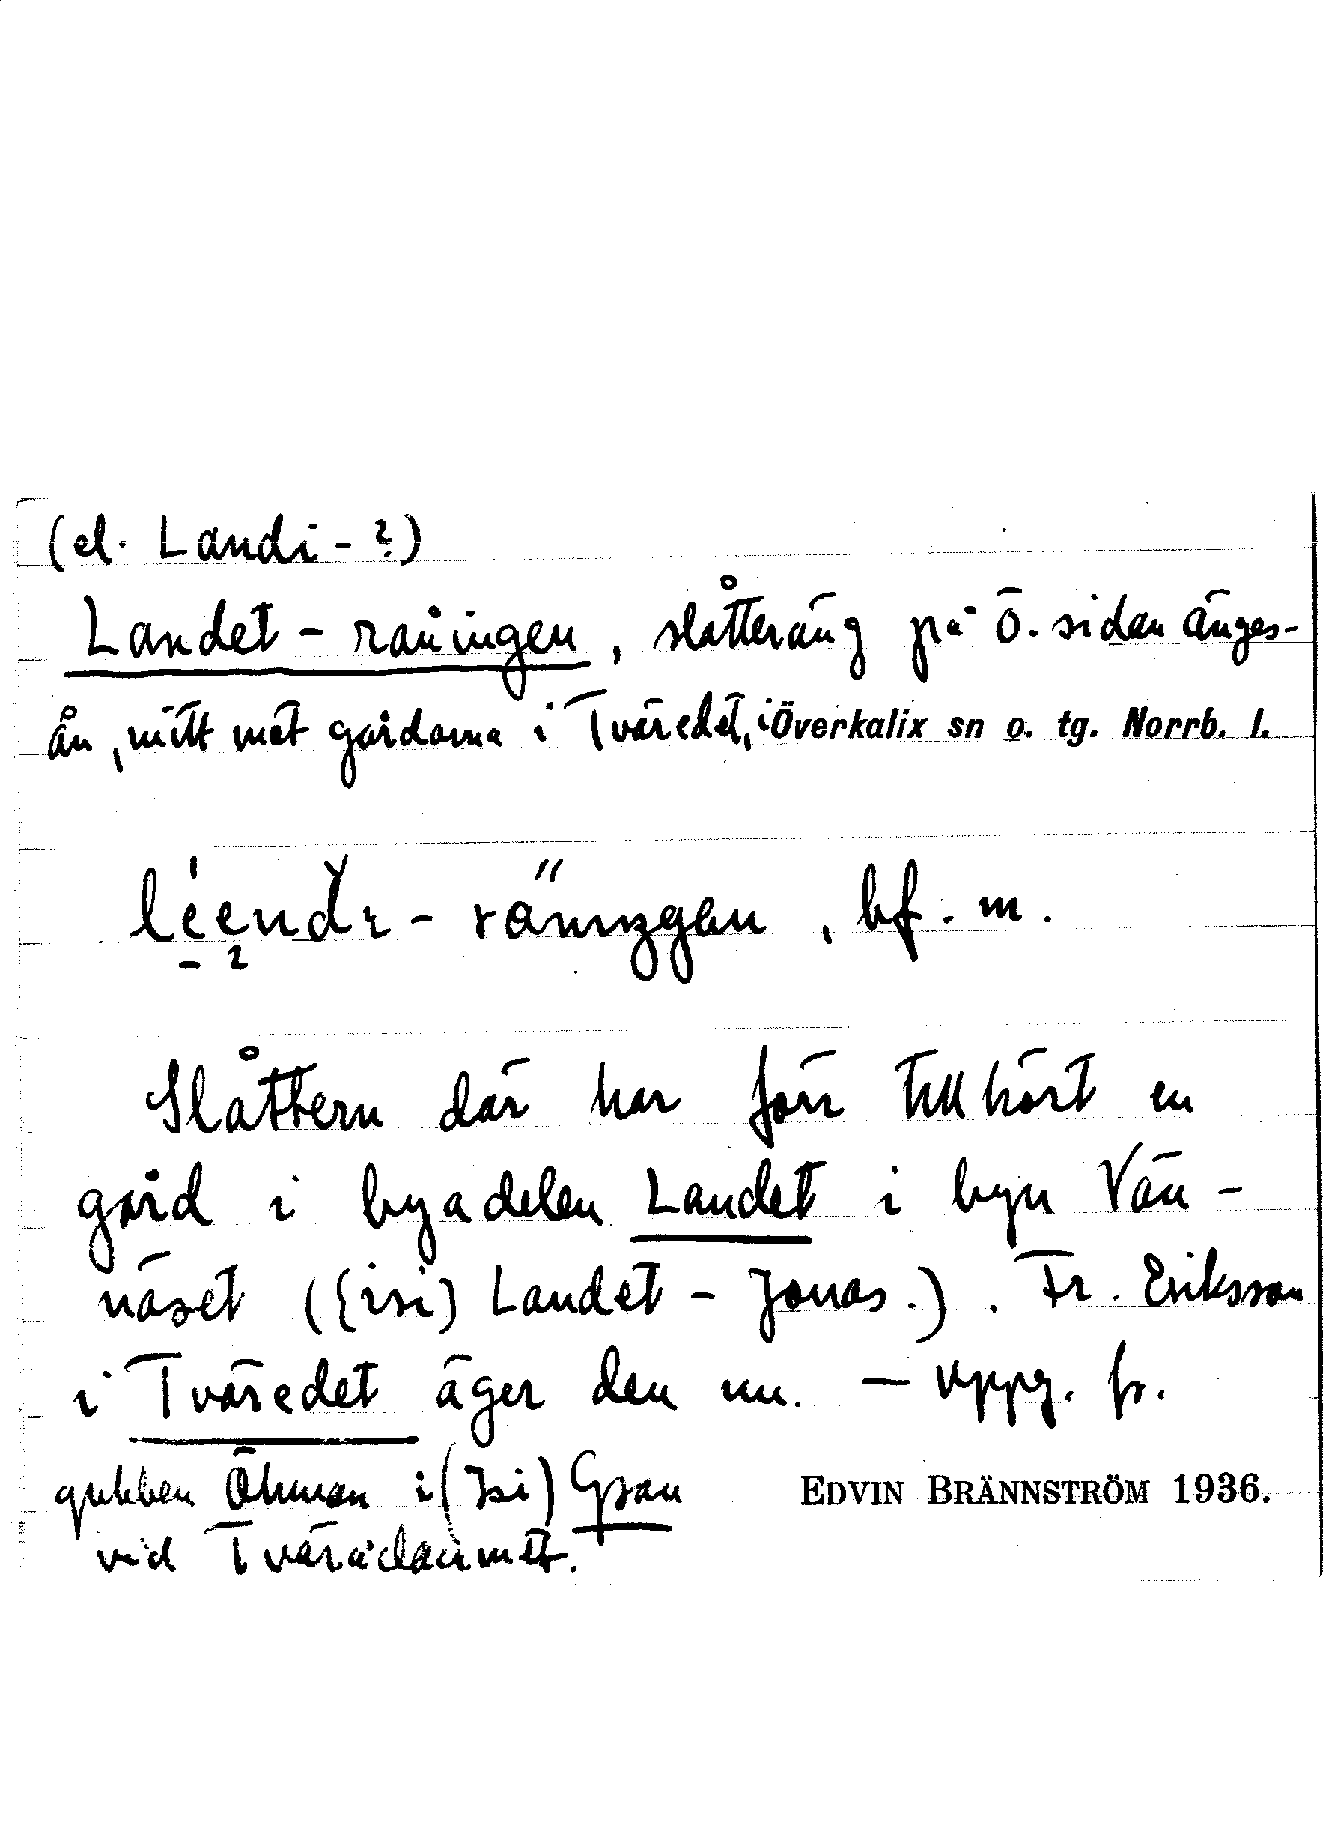 (el. Landi-?)
Landet-råningen, slåtteräng på ö. sidan Änges-
ån, mitt mot gårdarna i Tväredet, i Överkalix sn o. tg. Norrb. l.
bf. m.
Slåttern där har förr tillhört en
gård i byadelen Landet i byn Vän-
näset ( Landet-Jonas.). Fr. Eriksson
i Tväredet äger den nu. — Uppg. fr.
gubben Öhman i
EDVIN BRÄNNSTRÖM 1936.
vid Tvärådammet.